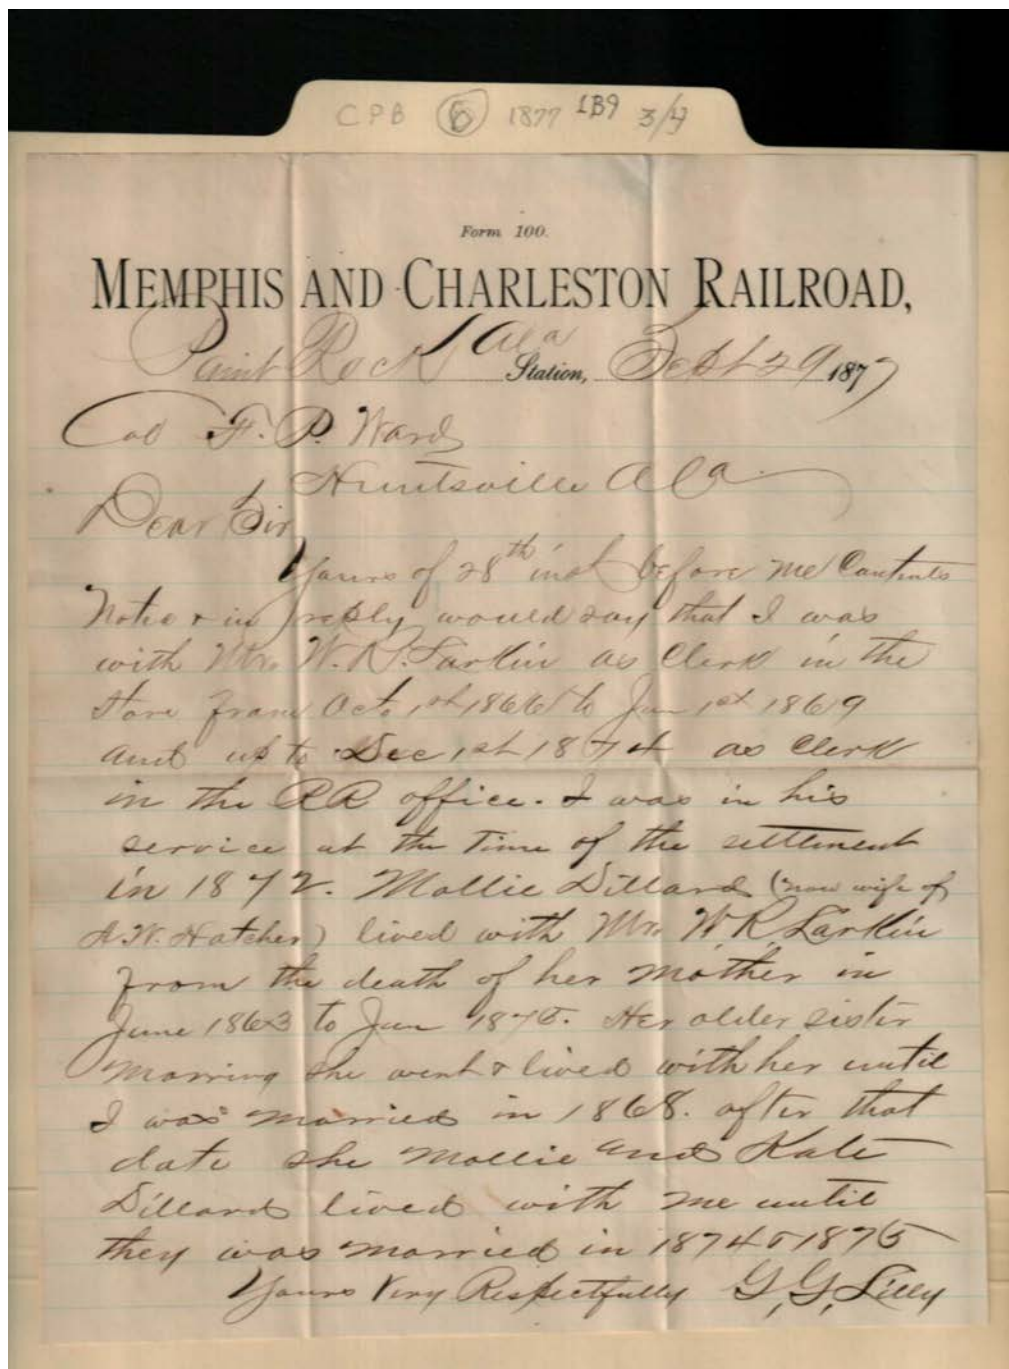 CPB 6 1877 1B9 3/4
Form 100.
MEMPHIS AND CHARLESTON RAILROAD,
Paint Rock Ala Station, Sept 29 1877
Col F. P. Ward
Huntsville Ala
Dear Sir
Yours of 28th inst before me Contents
Notice & in reply would say that I was
with Mr. W. R. Larkin as Clerk in the
store from Oct 1st 1866 to Jan 1st 1869
and up to Dec 1st 1874 as Clerk
in the RR office. I was in his
service at the time of the settlement
in 1872. Mollie Dillard (now wife of
A.W. Hatcher) lived with Mr. W.R. Larkin
from the death of her mother in
June 1863 to Jan 1875. Her older sister
marring she went & lived with her until
I was married in 1868. after that
date she Mollie and Kate
Dillard lived with me until
they was married in 1874 & 1875
Yours Very Respectfully G, G, Lilly